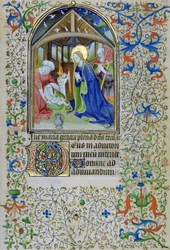 Ave maria gracia plena dns tecu
Deus in adiutori
um meum intende
Domine ad
adiuuandum